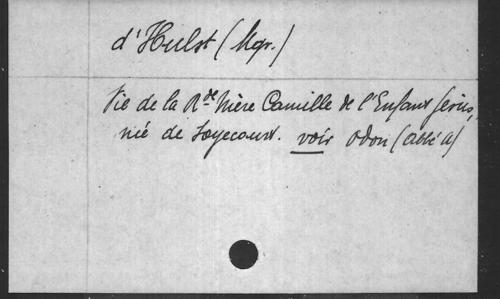 d'Hulst (Mgr.)
Vie de la Rde Mère Camille de l'Enfant Jésus,
née de Soyecourt. voir Odon (abbé A)